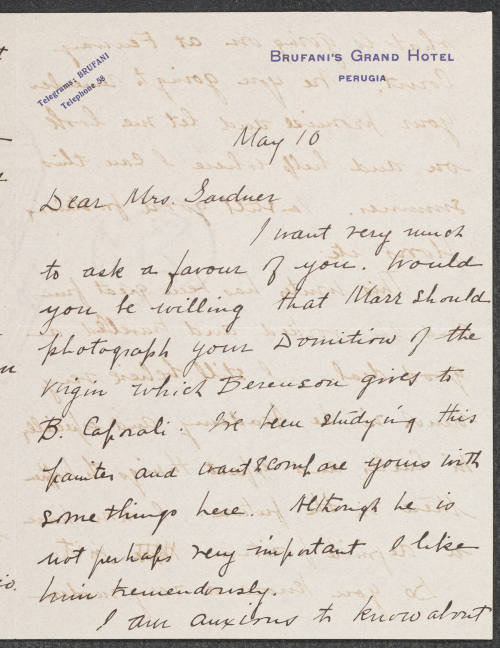 Telegrams: BRUFANI
Telephone 58
BRUFANI'S GRAND HOTEL
PERUGIA
May 10
Dear Mrs. Gardner
I want very much
to ask a favour of you. Would
you be willing that Marr should
photograph your Domition of the
Virgin which Berenson gives to
B. Caporali. I've been studying this
painter and want to compare yours with
some things here. Although he is
not perhaps very important I like
him tremendously.
I am anxious to know about